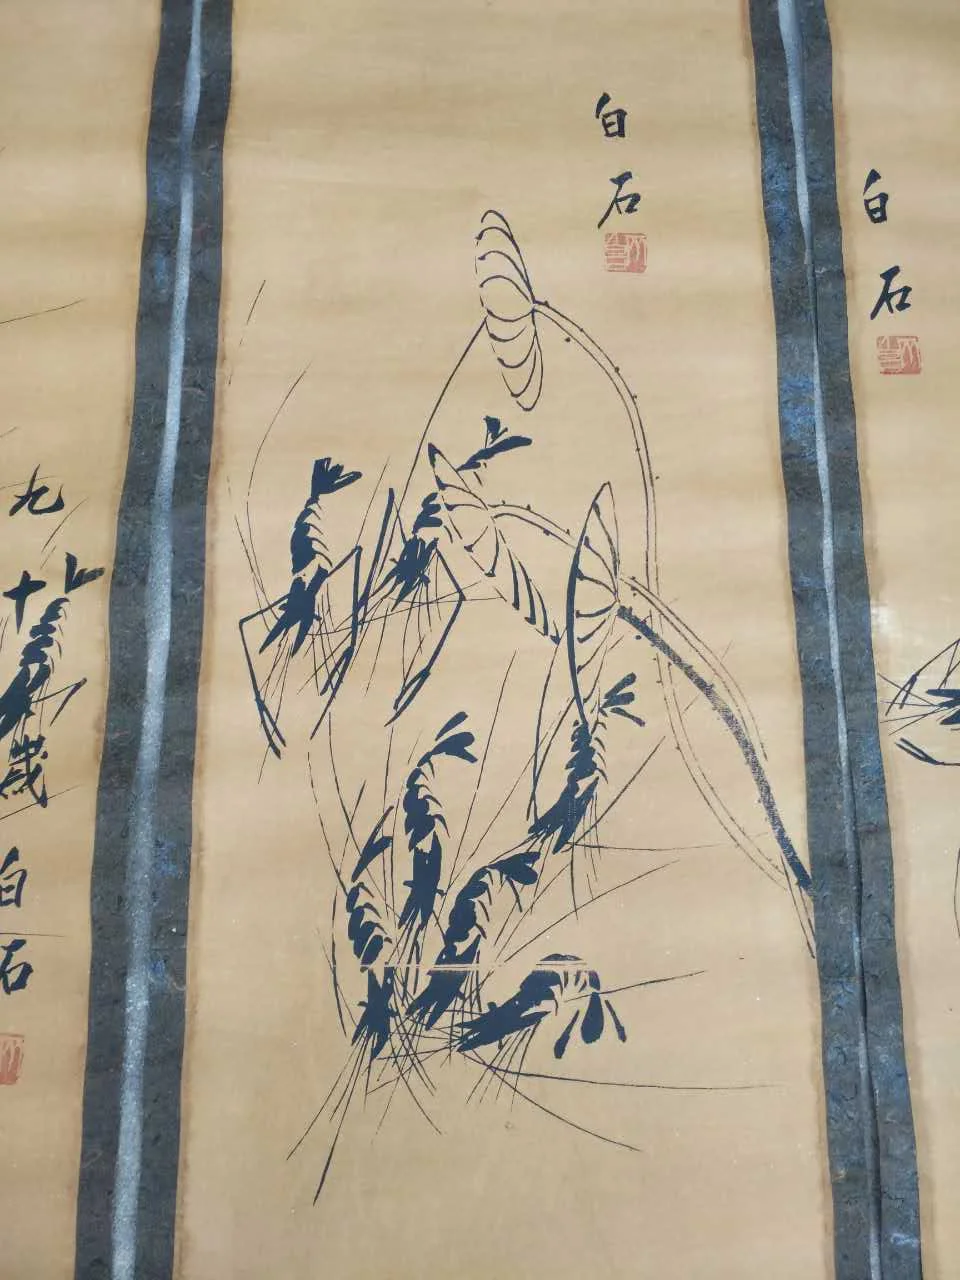 白石
白石
九十歲
白石